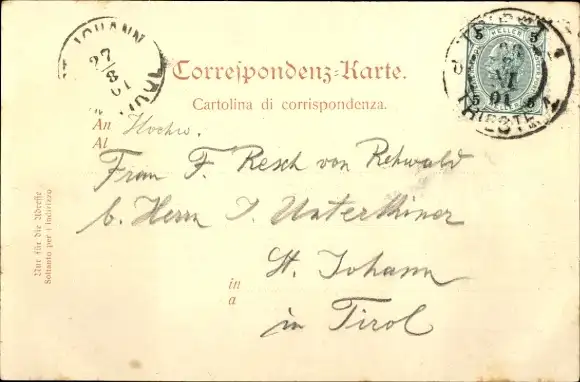 JOHANN
27
8
01
TRIEST
5 HELLER 5
VI
01
5 5
TRIESTE
Correspondenz-Karte.
Cartolina di corrispondenza.
An Hochw.
Al
Frau F. Resch von Rehwald
b. Herrn J. Unterthiner
St. Johann
in
a
in Tirol
Nur für die Adresse
Soltanto per l'indirizzo